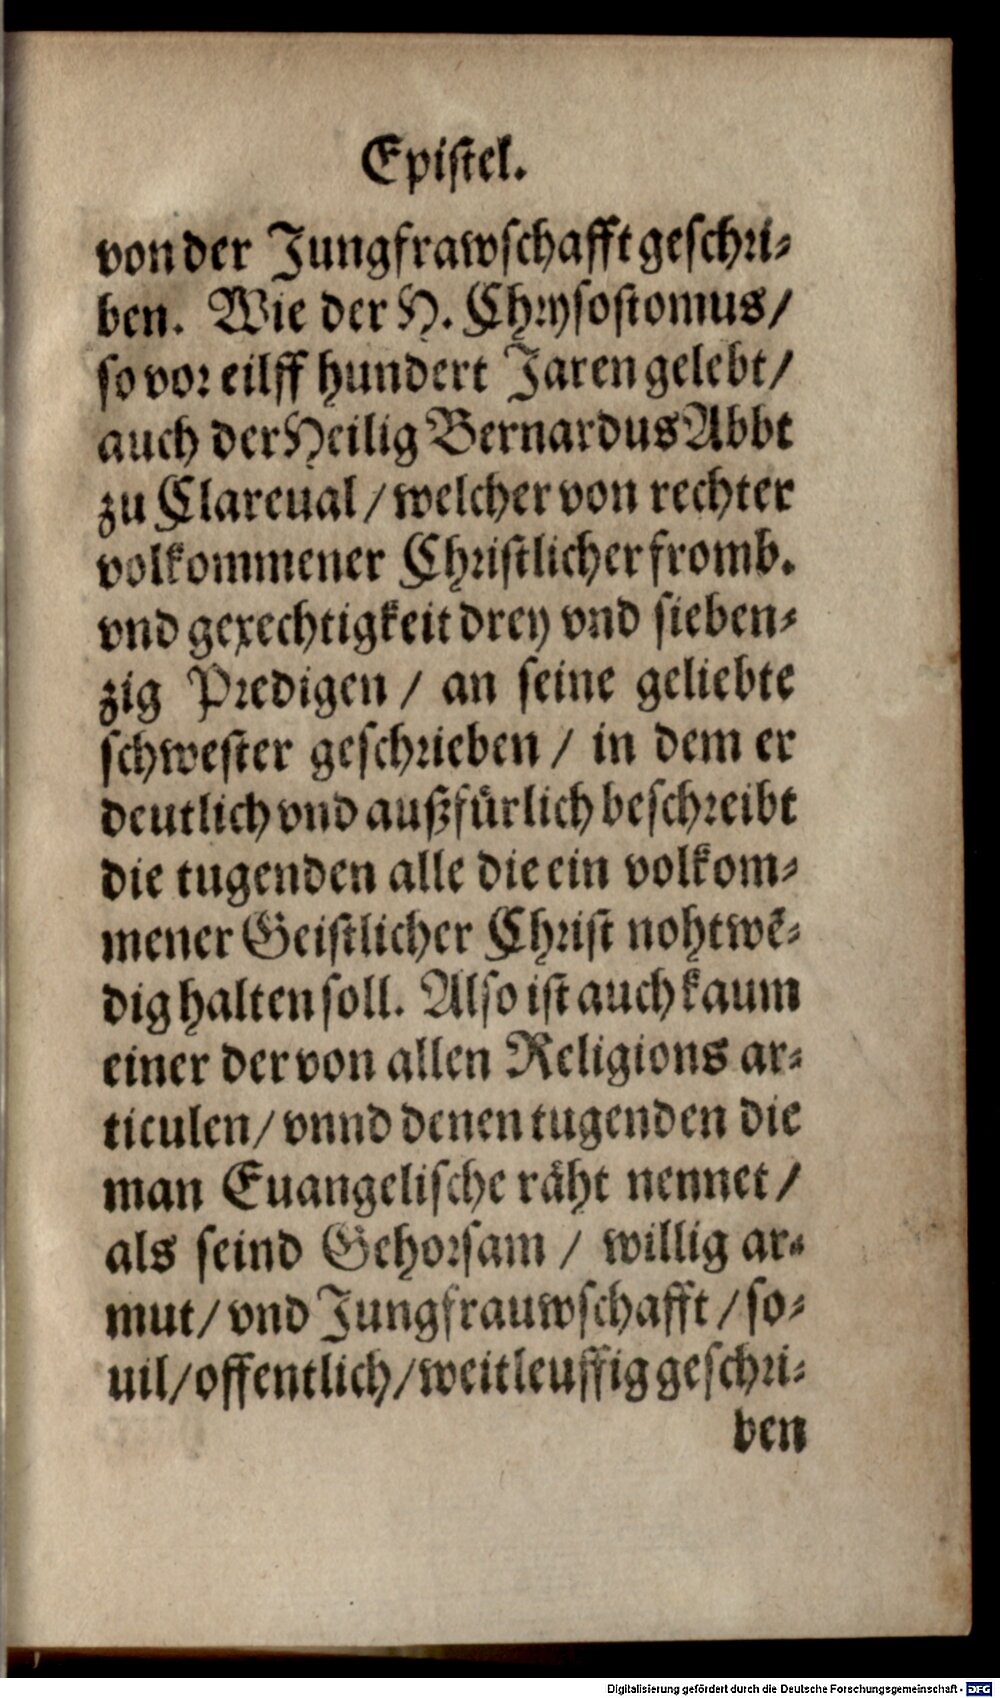 Epistel.
von der Jungfrawschafft geschri-
ben. Wie der H. Chrysostomus/
so vor eilff hundert Jaren gelebt/
auch der Heilig Bernardus Abbt
zu Clareual/ welcher von rechter
volkommener Christlicher fromb.
vnd gerechtigkeit drey vnd sieben-
zig Predigen/ an seine geliebte
schwester geschrieben/ in dem er
deutlich vnd außfürlich beschreibt
die tugenden alle die ein volkom-
mener Geistlicher Christ nohtwē-
dig halten soll. Also ist auch kaum
einer der von allen Religions ar-
ticulen/ vnnd denen tugenden die
man Euangelische räht nennet/
als seind Gehorsam/ willig ar-
mut/ vnd Jungfrauwschafft/ so-
uil/ offentlich/ weitleuffig geschri-
ben
Digitalisierung gefördert durch die Deutsche Forschungsgemeinschaft - DFG